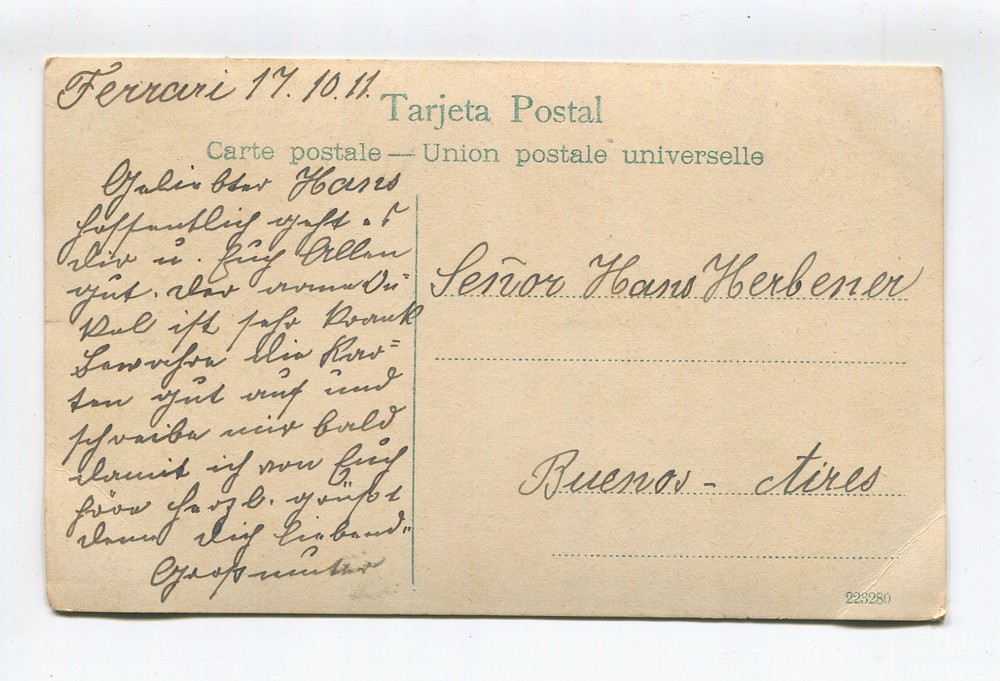 Ferrari 17. 10. 11.
Tarjeta Postal
Carte postale — Union postale universelle
Geliebter Hans
hoffentlich geht es
dir u. Euch Allen
gut. der arme On=
kel ist sehr krank
bewahre die Kar=
ten gut auf und
schreibe mir bald
damit ich von Euch
höre herzl. grüßt
denn Dich liebend=
Großmutter
Señor Hans Herbener
Buenos-Aires
223280